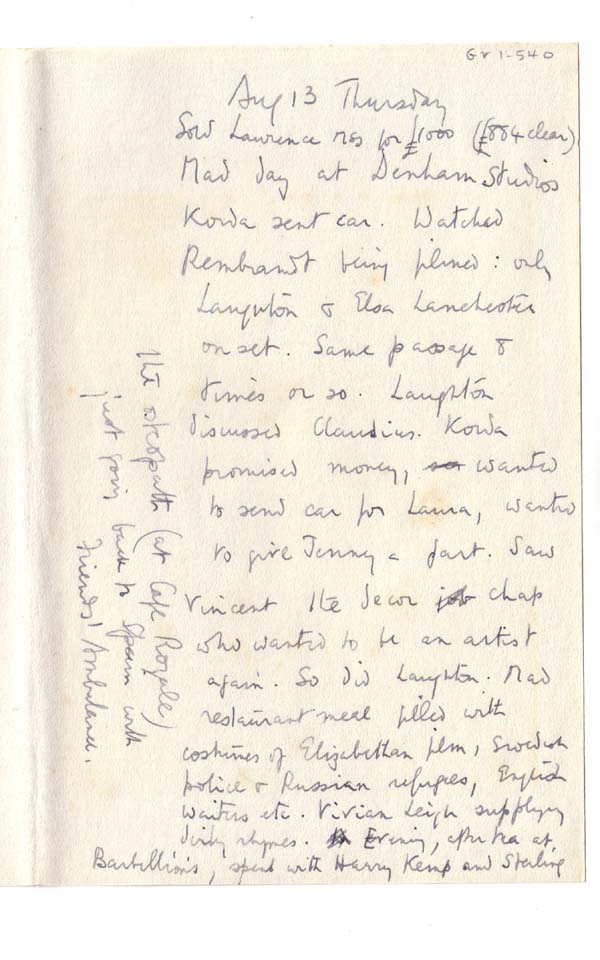 Gr 1-540
Aug 13 Thursday
Sold Lawrence mss for £1000 (£884 clear)
Mad day at Denham Studios
Korda sent car. Watched
Rembrandt being filmed: only
Laughton & Elsa Lanchester
on set. Same passage 8
times or so. Laughton
discussed Claudius. Korda
promised money, wanted
to send car for Laura, wanted
to give Jenny a part. Saw
Vincent the decor job chap
who wanted to be an artist
again. So did Laughton. Mad
restaurant meal filled with
costumes of Elizabethan film, Swedish
police & Russian refugees, English
waiters etc. Vivian Leigh supplying
dirty rhymes. Evening, after tea at
Barbellion's, spent with Harry Kemp and Sterling
the osteopath (at Cafe Royale)
just going back to Spain with
Friends' Ambulance.